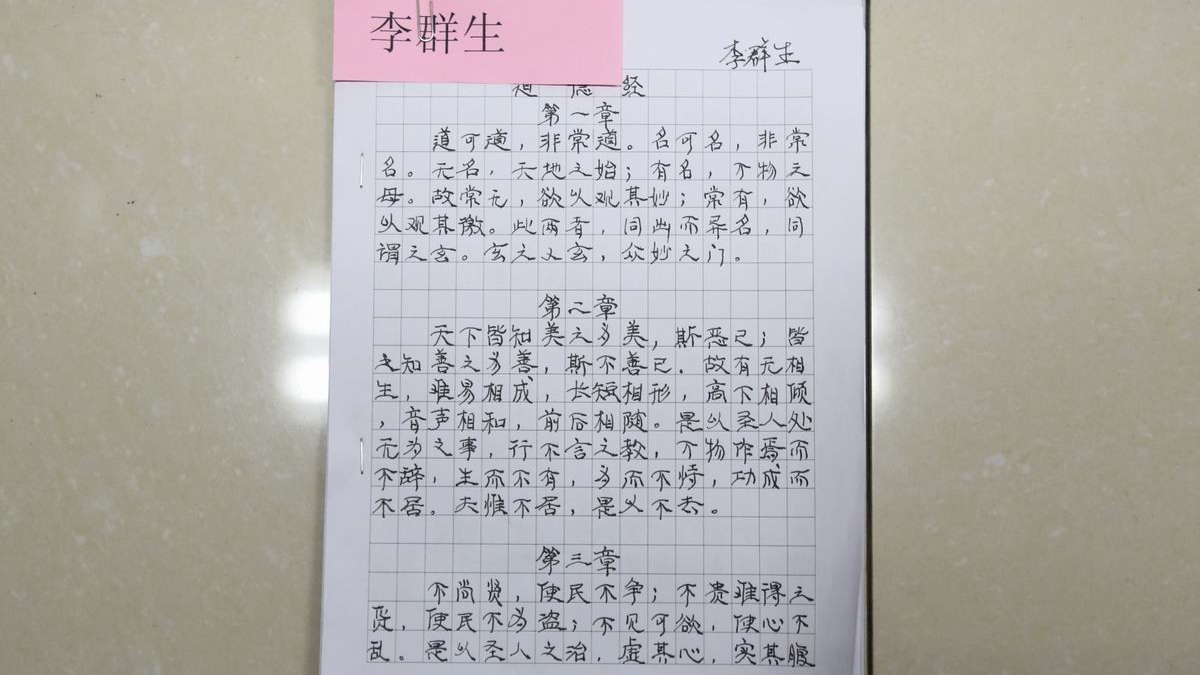 李群生
李群生
道德经
第一章
道可道，非常道。名可名，非常
名。无名，天地之始；有名，万物之
母。故常无，欲以观其妙；常有，欲
以观其徼。此两者，同出而异名，同
谓之玄。玄之又玄，众妙之门。
第二章
天下皆知美之为美，斯恶已；皆
之知善之为善，斯不善已．故有无相
生，难易相成，长短相形，高下相倾
，音声相和，前后相随。是以圣人处
无为之事，行不言之教，万物作焉而
不辞，生而不有，为而不恃，功成而
不居。夫惟不居，是以不去。
第三章
不尚贤，使民不争；不贵难得之
货，使民不为盗；不见可欲，使心不
乱。是以圣人之治，虚其心，实其腹